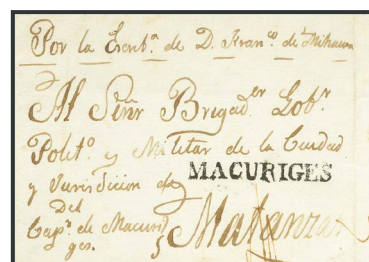 Por la Escrib.ª de D. Fran.co de
Al Señr Brigad.er Gob.r
Polit.º y Militar de la Ciudad
y Jurisdicion de
MACURIGES
Del
Cap.n de Macuri
ges.
Matanzas